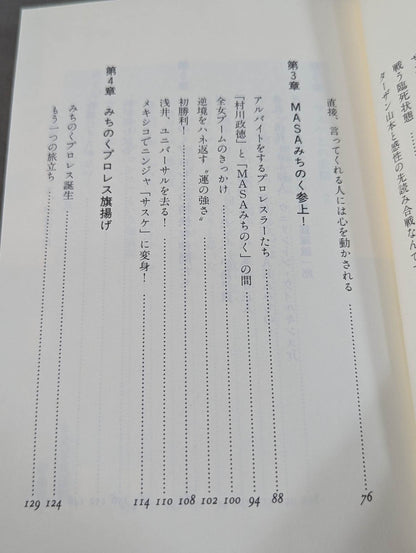 戦う臨死状態
ターザン山本と感性の先読み合戦なんて
直接、言ってくれる人には心を動かされる 76
第3章 MASAみちのく参上！
アルバイトをするプロレスラーたち 88
「村川政徳」と「MASAみちのく」の間 94
全女ブームのきっかけ 100
逆境をハネ返す〝運の強さ〟 102
初勝利！ 108
浅井、ユニバーサルを去る！ 110
メキシコでニンジャ「サスケ」に変身！ 114
第4章 みちのくプロレス旗揚げ
みちのくプロレス誕生 124
もう一つの旅立ち 129